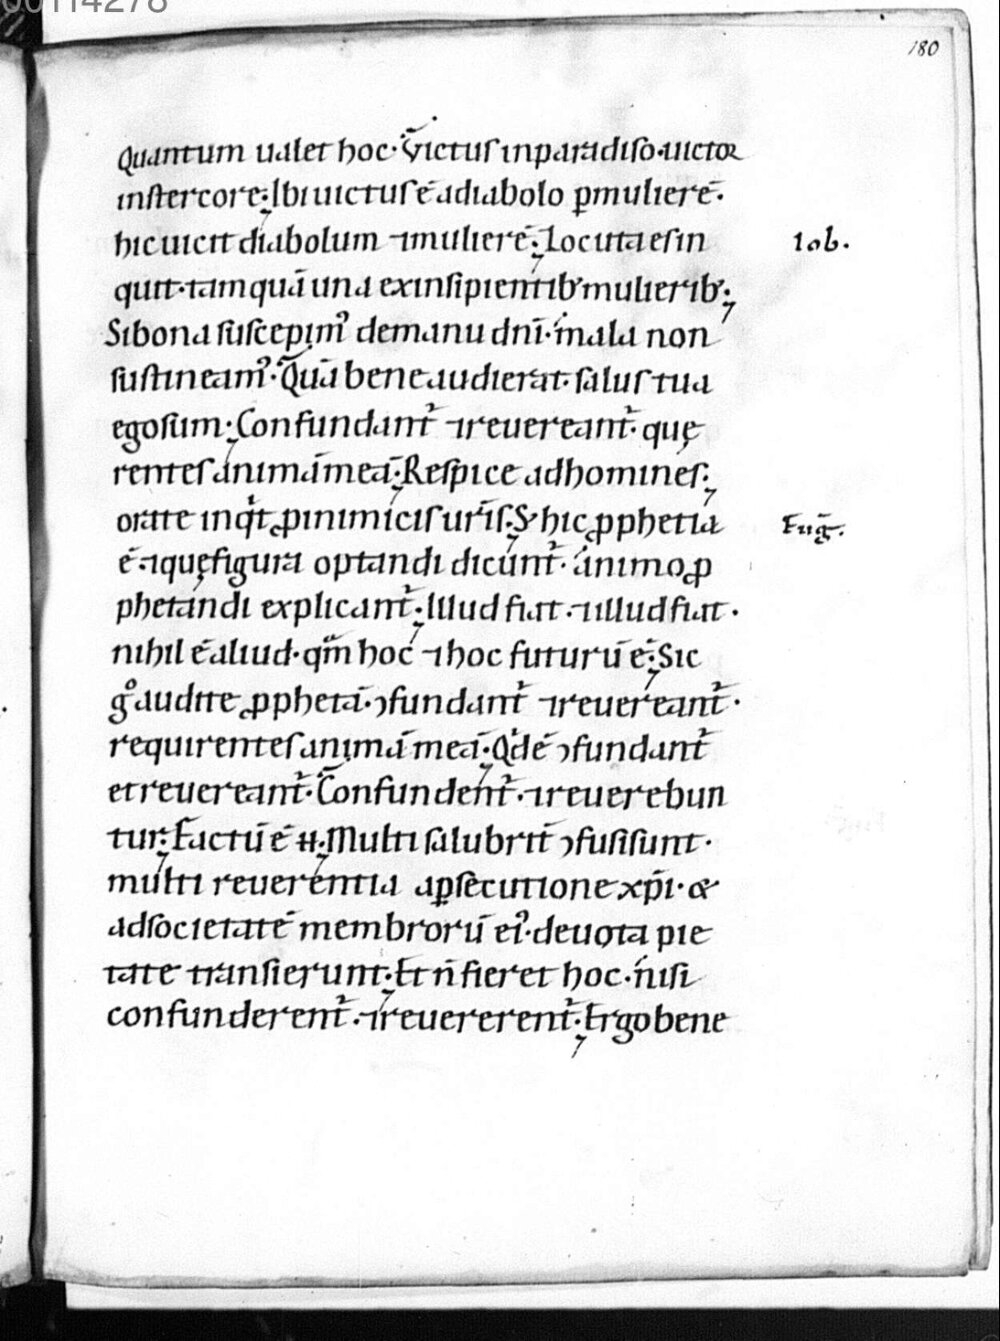 00114278
180
Quantum ualet hoc· Victus in paradiso· uictor
in stercore; Ibi uictus ē a diabolo ꝑ mulierē·
hic uicit diabolum ⁊ mulierē; Locuta es in
Iob.
quit· tam quā una ex insipientib' mulierib';
Si bona suscepimꝰ de manu dnī· mala non
sustineamꝰ· Quā bene audierat· salus tua
ego sum; Confundant᷑ ⁊ reuereant᷑· quę
rentes animā meā; Respice ad homines;
orate inqͥt ꝓ inimicis urīs; & hic ꝓphetia
Eug̅.
ē· ⁊ quę figura optandi dicunt᷑· animo ꝓ
phetandi explicant᷑; Illud fiat· ⁊ illud fiat·
nihil ē aliud· qͣm hoc ⁊ hoc futurū ē; Sic
gͦ audite ꝓphetā· ↄfundant᷑ ⁊ reuereant᷑·
requirentes animā meā; Qͥd ē ↄfundant᷑
et reuereant᷑· Confundent᷑· ⁊ reuerebun
tur; Factū ē ; Multi salubrit̄ ↄfusi sunt·
multi reuerentia a ꝑsecutione xp̄i· &
ad societatē membrorū eiꝰ· deuota pie
tate transierunt; Et n̄ fieret hoc· nisi
confunderent᷑· ⁊ reuererent᷑; Ergo bene